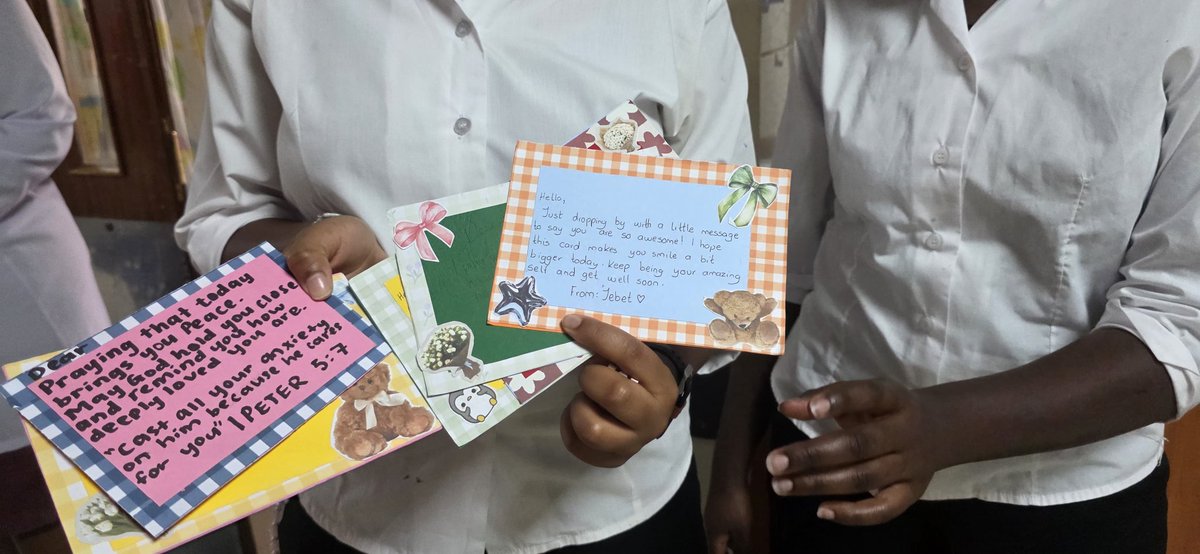 Dear
Praying that today
brings you Peace.
May God hold you close
and remind you how
deeply loved you are.
"Cast all your anxiety
on him because he cares
for you" 1 PETER 5:7
Hello,
Just dropping by with a little message
to say you are so awesome! I hope
this card makes you smile a bit
bigger today. Keep being your amazing
self and get well soon.
From: Jebet ♡